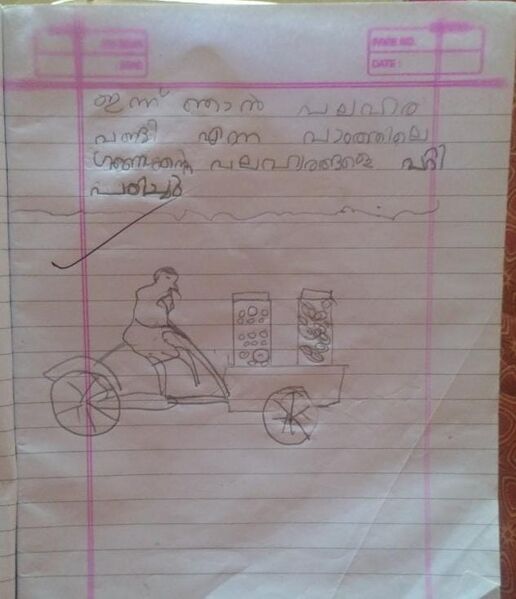 PAGE NO.
DATE :
ഇന്ന് ഞാൻ പലഹാര
വണ്ടി എന്ന പാഠത്തിലെ
പലഹാരങ്ങളെ പറ്റി
പഠിച്ചു